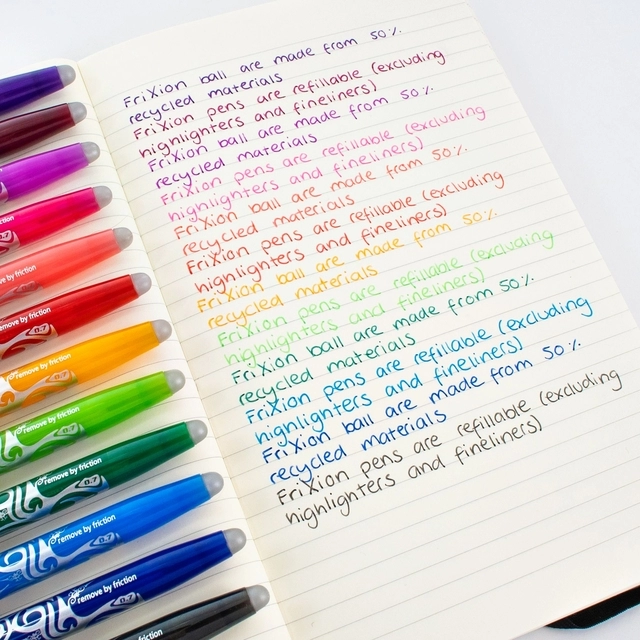 FriXion ball are made from 50%
recycled materials
FriXion pens are refillable (excluding
highlighters and fineliners)
FriXion ball are made from 50%
recycled materials
FriXion pens are refillable (excluding
highlighters and fineliners)
FriXion ball are made from 50%
recycled materials
FriXion pens are refillable (excluding
highlighters and fineliners)
FriXion ball are made from 50%
recycled materials
FriXion pens are refillable (excluding
highlighters and fineliners)
FriXion ball are made from 50%
recycled materials
FriXion pens are refillable (excluding
highlighters and fineliners)
FriXion ball are made from 50%
recycled materials
FriXion pens are refillable (excluding
highlighters and fineliners)
friction
remove by friction
0.7
remove by friction
0.7
remove by friction
0.7
remove by friction
0.7
remove by friction
0.7
remove by friction
0.7
remove by friction